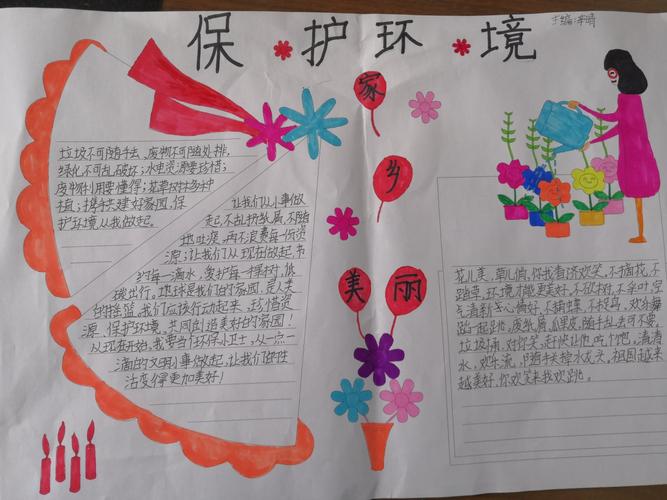 保护环境
主编:李晴
家
乡
美丽
垃圾不可随手丢,废物不可随处排,
绿化不可乱破坏;水电资源要珍惜;
废物利用要懂得;花草树林多种
植;携手共建好家园,保
护环境从我做起。
让我们从小事做
起,不乱扔纸屑、不随
地吐痰,再不浪费每一份资
源;让我们从现在做起,节
约每一滴水,爱护每一棵树,低
碳出行。地球是我们的家园!是人类
的摇篮,我们应该行动起来,珍惜资
源,保护环境,共同创造美好的家园!
从现在开始,我要当个环保小卫士,从一点一
滴的文明小事做起,让我们的生
活变得更加美好!
花儿美,草儿俏,你我看济欢笑,不摘花,不
踏草,环境才能更美好,不砍树,不
气清新 心情好,不捕蝶,不投鸟,欢分舞
蹈一起跳,废纸屑,瓜果皮,随手乱丢可不要,
垃圾桶,对你笑,赶快让他吃个饱,清清
水,欢乐流,随手关掉水龙头,祖国越来
越美好,你欢笑来我欢跳。